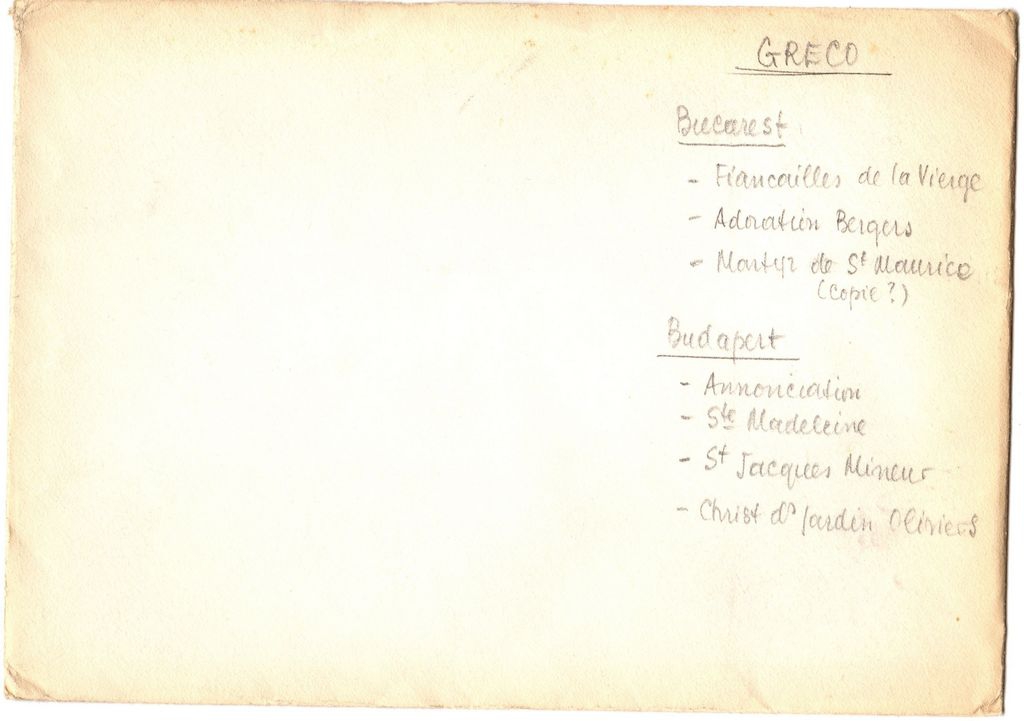 GRECO
Bucarest
- Fiancailles de la Vierge
- Adoration Bergers
- Martyr de St Maurice
(copie ?)
Budapest
- Annonciation
- Ste Madeleine
- St Jacques Mineur
- Christ ds Jardin Oliviers